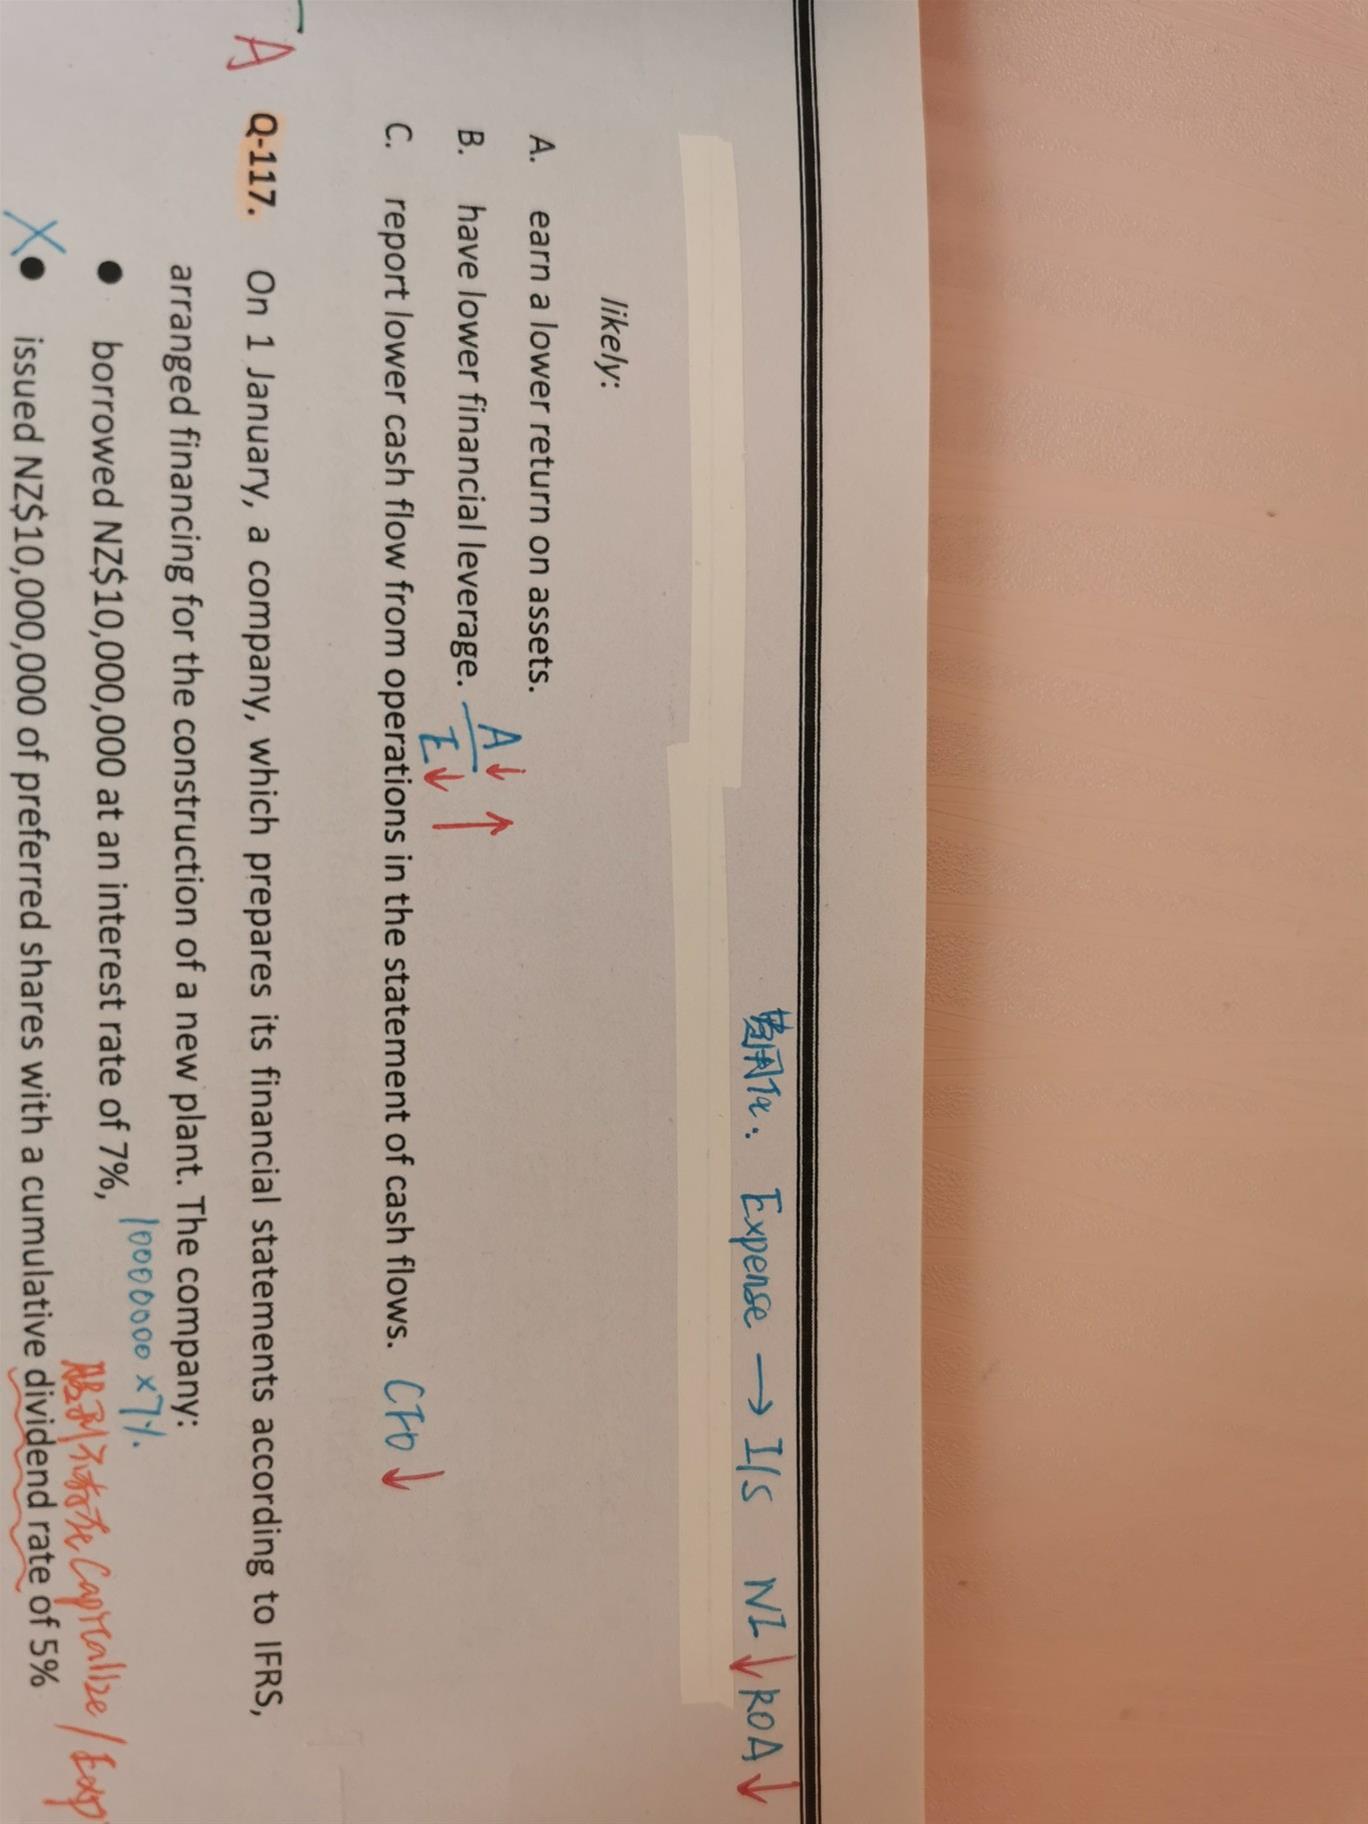 Expense → I/S NI↓ ROA↓
likely:
A. earn a lower return on assets.
B. have lower financial leverage. A↓ / E↓ ↑
C. report lower cash flow from operations in the statement of cash flows. CFO↓
A Q-117. On 1 January, a company, which prepares its financial statements according to IFRS,
arranged financing for the construction of a new plant. The company:
● borrowed NZ$10,000,000 at an interest rate of 7%, 10000000×7%.
股利不能 Capitalize / Exp
X ● issued NZ$10,000,000 of preferred shares with a cumulative dividend rate of 5%